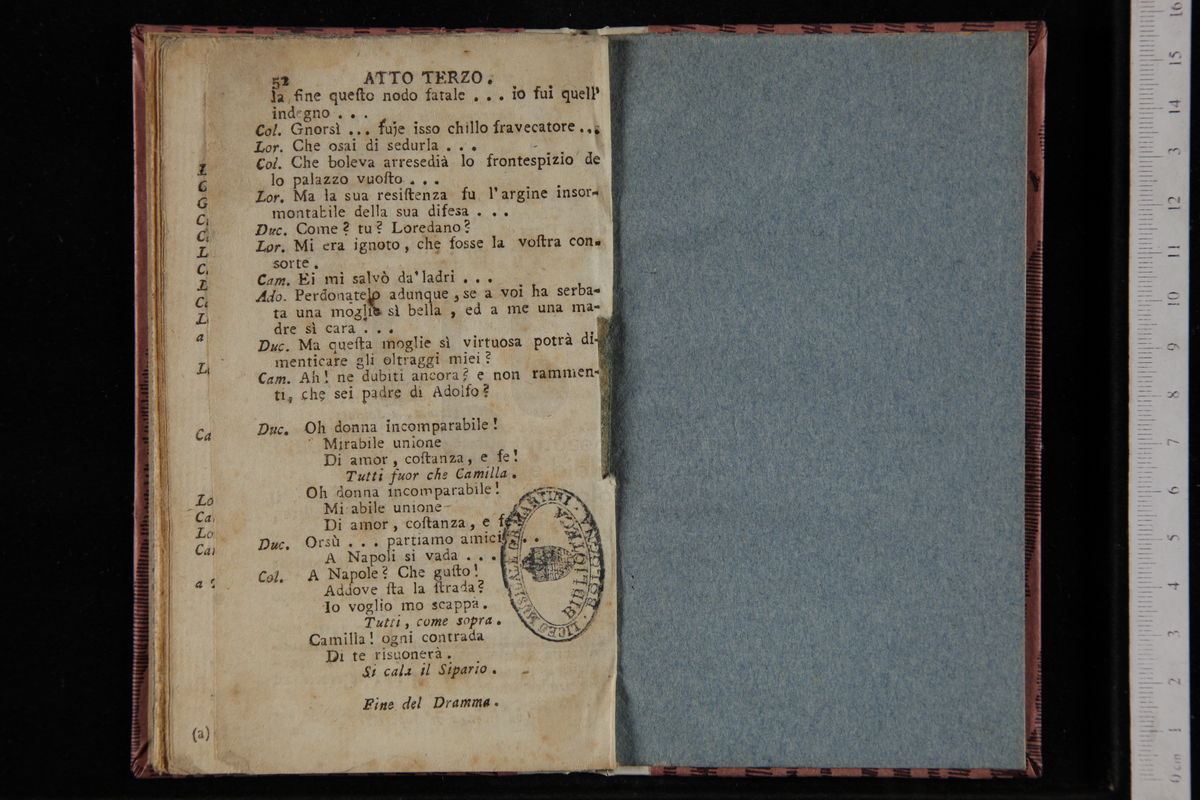 52 ATTO TERZO.
la fine queſto nodo fatale . . . io fui quell'
indegno . . .
Col. Gnorsì . . . fuje isso chillo fravecatore . . .
Lor. Che osai di sedurla . . .
Col. Che boleva arresedià lo frontespizio de
lo palazzo vuoſto . . .
Lor. Ma la sua resiſtenza fu l'argine insor-
montabile della sua difesa . . .
Duc. Come? tu? Loredano?
Lor. Mi era ignoto, che fosse la voſtra con-
sorte.
Cam. Ei mi salvò da'ladri . . .
Ado. Perdonatelo adunque, se a voi ha serba-
ta una moglie sì bella, ed a me una ma-
dre sì cara . . .
Duc. Ma queſta moglie sì virtuosa potrà di-
menticare gli oltraggi miei?
Cam. Ah! ne dubiti ancora? e non rammen-
ti, che sei padre di Adolfo?
Duc. Oh donna incomparabile!
Mirabile unione
Di amor, coſtanza, e fe!
Tutti fuor che Camilla.
Oh donna incomparabile!
Mi abile unione
Di amor, coſtanza, e fe
Duc. Orsù . . . partiamo amici . .
A Napoli si vada . . .
Col. A Napole? Che guſto!
Addove ſta la ſtrada?
Io voglio mo scappà.
Tutti, come sopra.
Camilla! ogni contrada
Di te risuonerà.
Si cala il Sipario.
Fine del Dramma.
LICEO MUSICALE G.B. MARTINI · BOLOGNA ·
BIBLIOTECA
L
G
G
C
C
L
C
L
C
L
a
L
Ca
Lo
Ca
Lo
Ca
a
(a)
0 cm 1 2 3 4 5 6 7 8 9 10 11 12 3 14 15 16